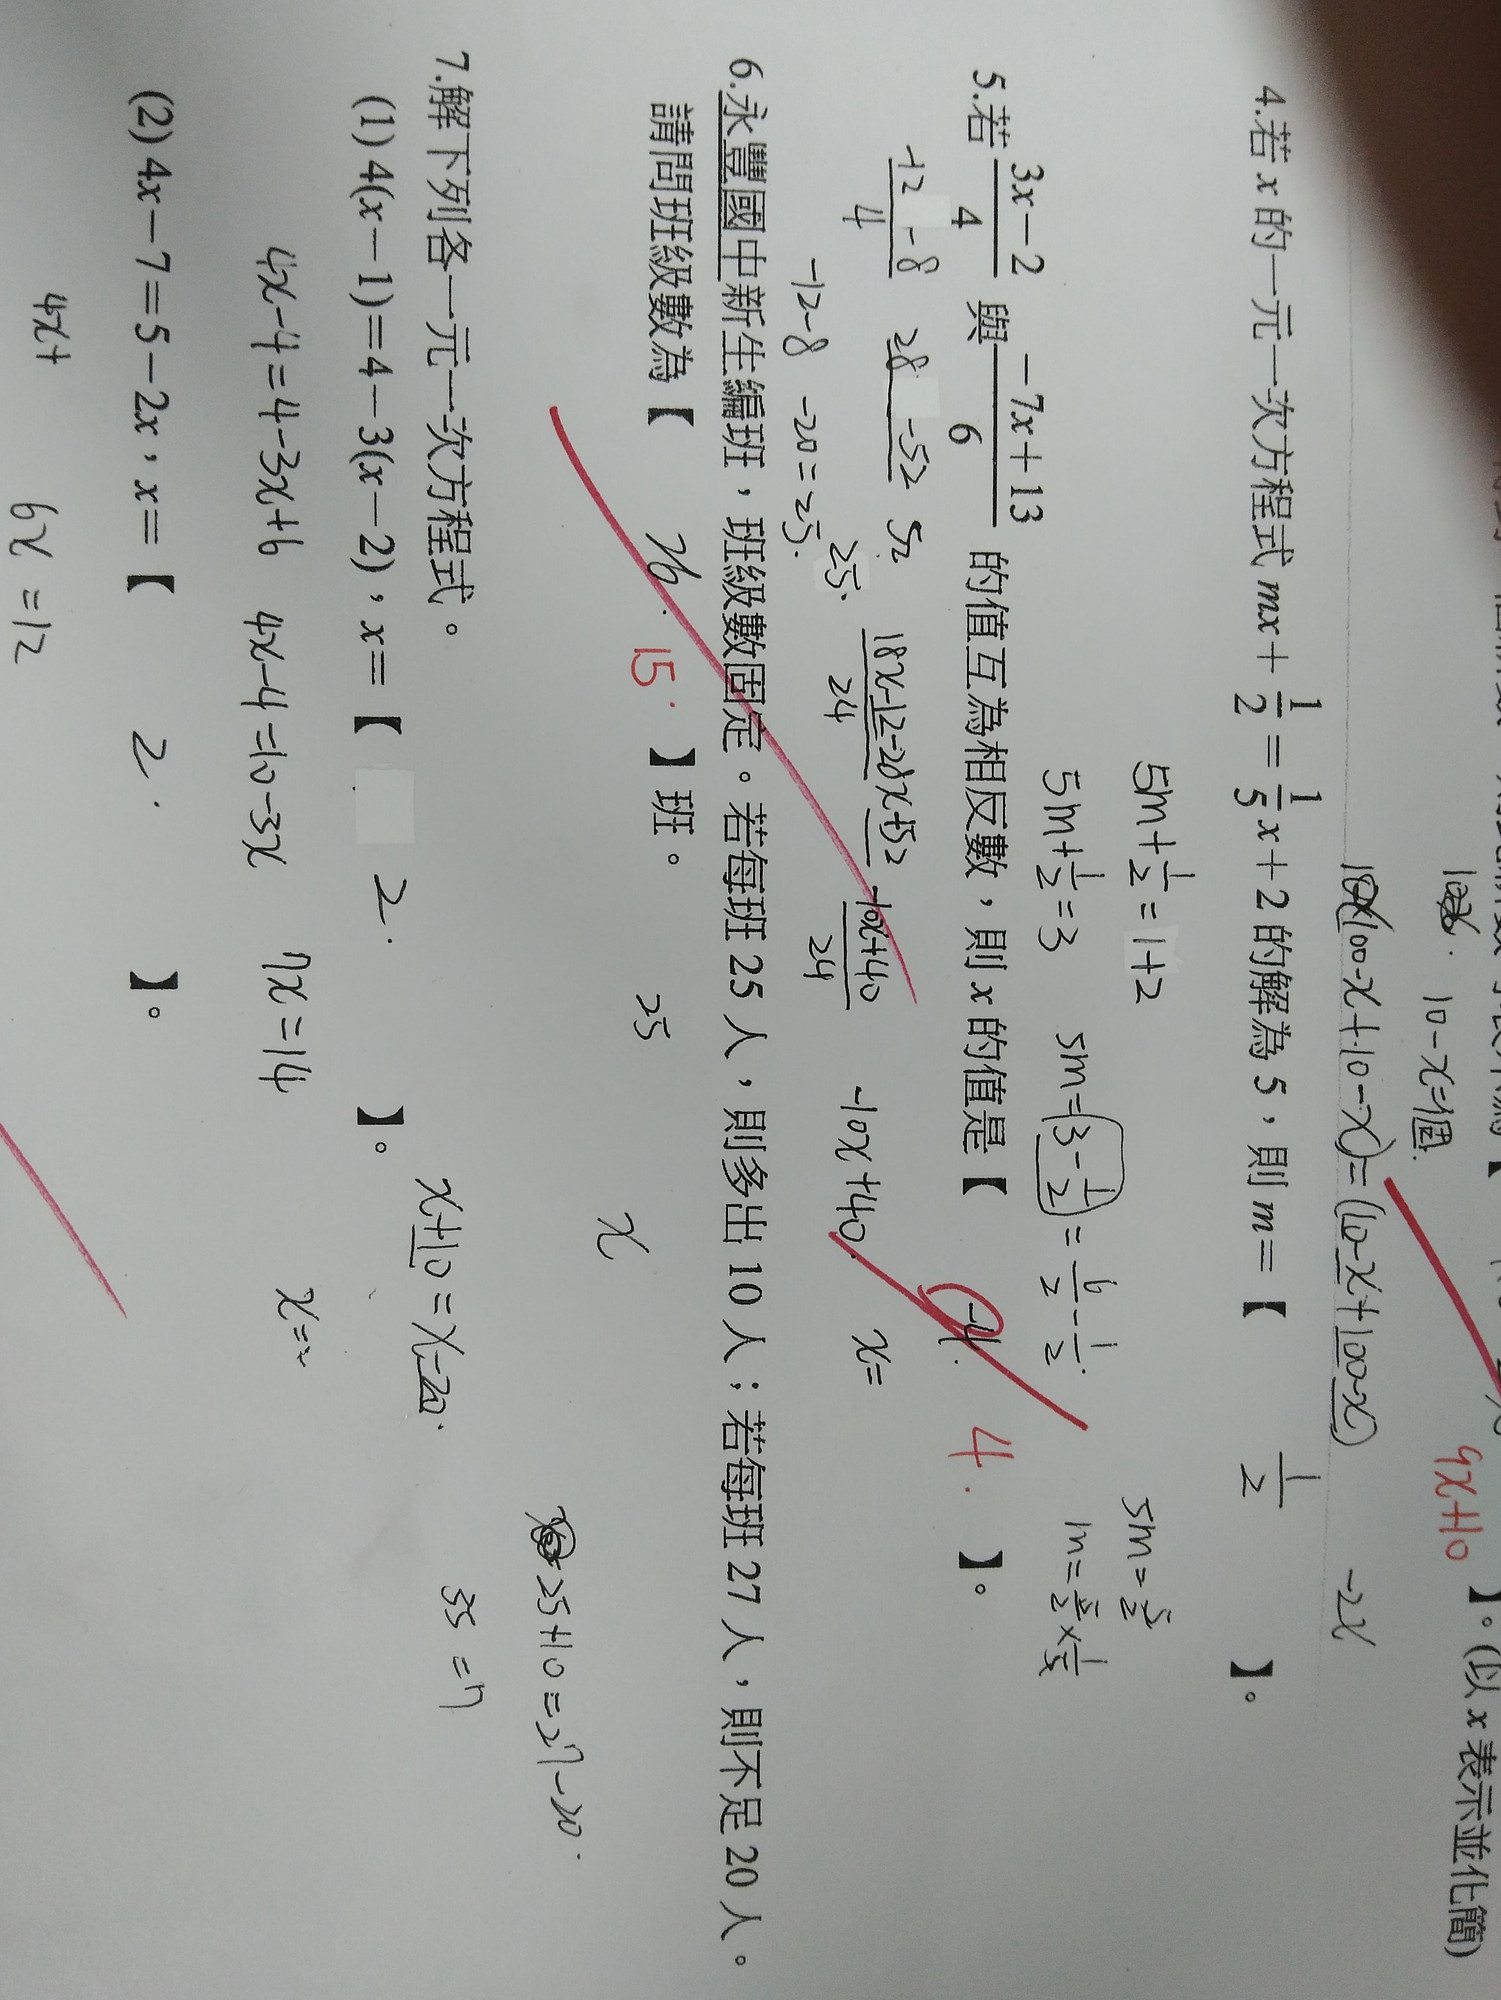 10-x=個
9x+10
】。(以x表示並化簡)
100-x+10-x)=(10-x+100-x)
-2x
4.若x的一元一次方程式mx+1/2=1/5x+2的解為5，則m=【 1/2 】。
5m+1/2=1+2
5m=5/2
5m+1/2=3
5m=(3-1/2)=6/2-1/2
m=5/2×1/5
5.若 3x-2/4 與 -7x+13/6 的值互為相反數，則x的值是【 -4. 4. 】。
-12-8/4
28-52
52
18x-12-28x+52/24
-10x+40/24
-10x+40
x=
-12-8
-20=25.
25.
6.永豐國中新生編班，班級數固定。若每班25人，則多出10人；若每班27人，則不足20人。
請問班級數為【 76. 15. 】班。
25
x
25+10=27-20.
7.解下列各一元一次方程式。
x+10=x-20.
35=7
(1)4(x-1)=4-3(x-2)，x=【 2. 】。
4x-4=4-3x+6
4x-4=10-3x
7x=14
x=2
(2)4x-7=5-2x，x=【 2. 】。
4x+
6x=12